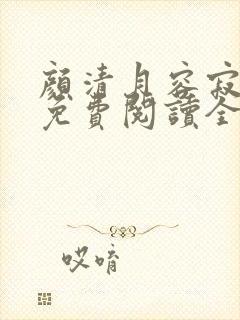 顏清月容寂
免費閱讀全
哎唷